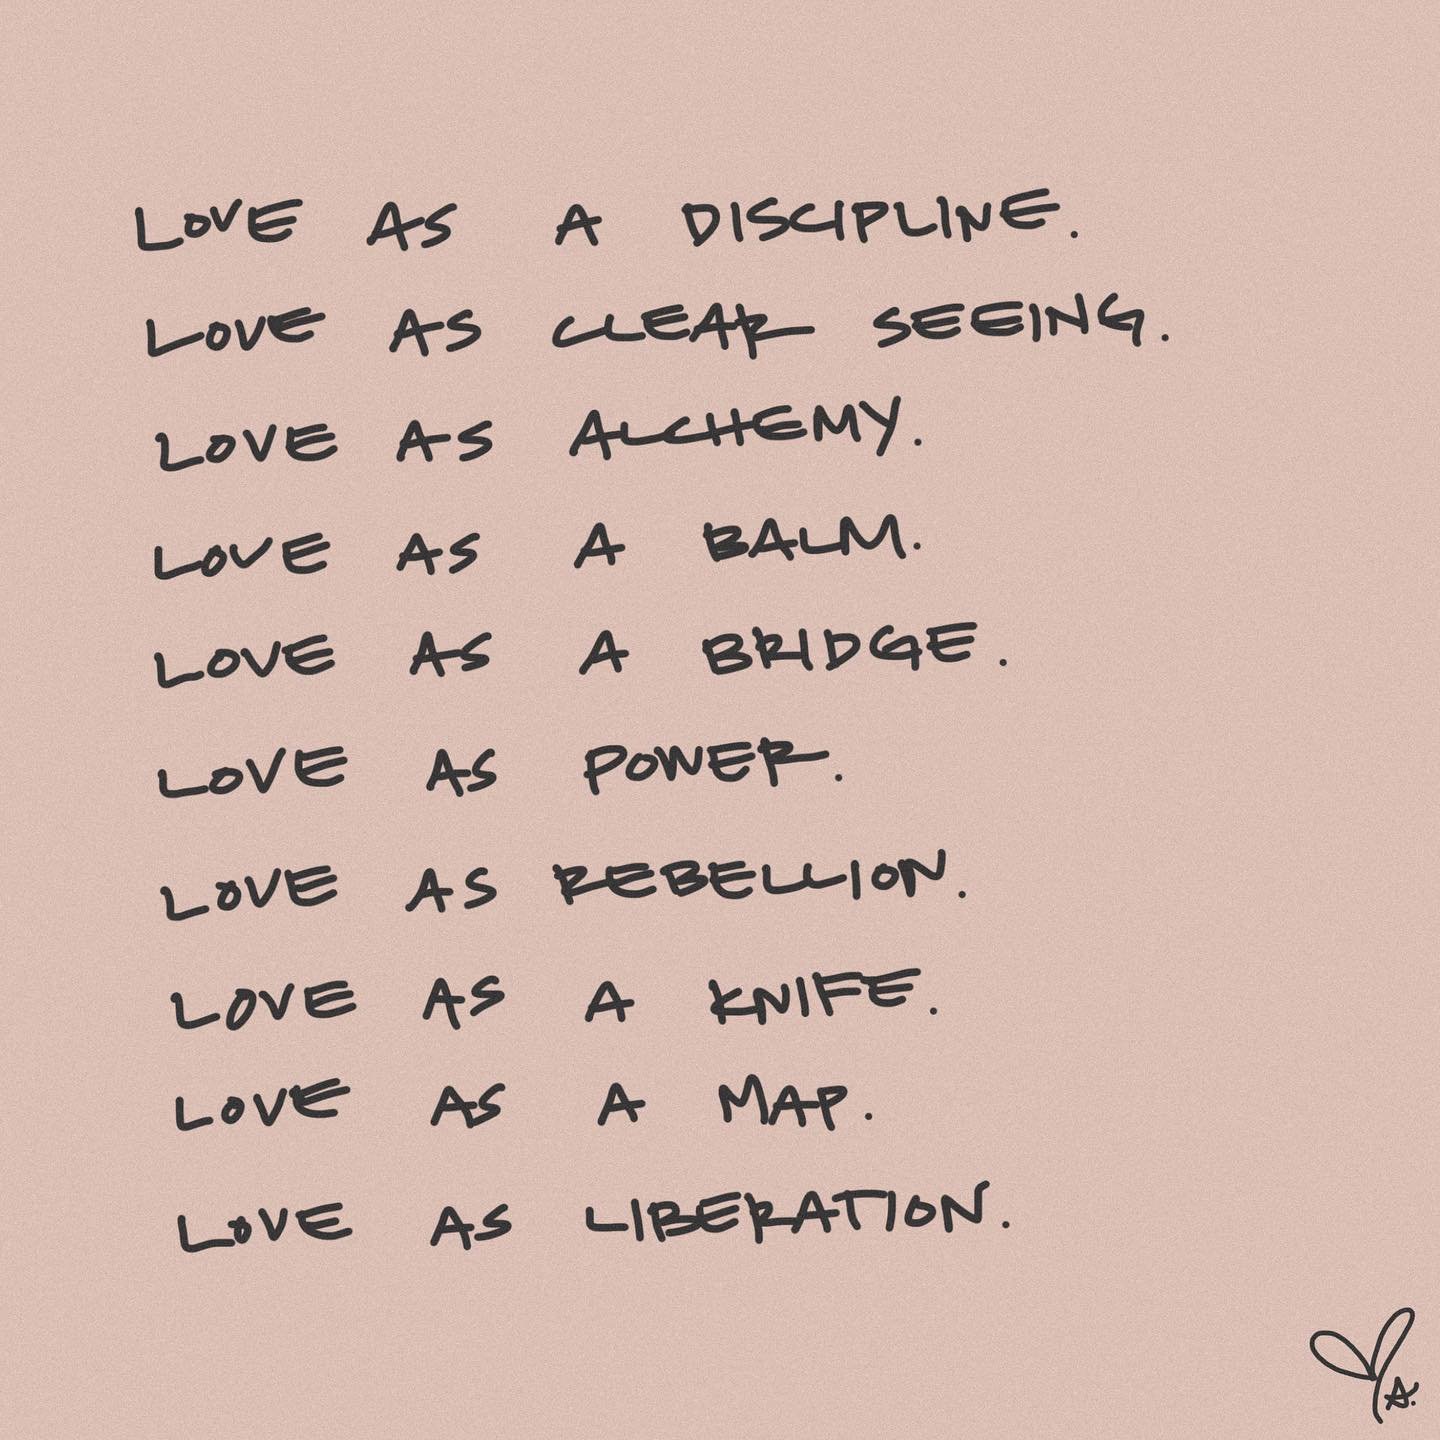 LOVE AS A DISCIPLINE.
LOVE AS CLEAR SEEING.
LOVE AS ALCHEMY.
LOVE AS A BALM.
LOVE AS A BRIDGE.
LOVE AS POWER.
LOVE AS REBELLION.
LOVE AS A KNIFE.
LOVE AS A MAP.
LOVE AS LIBERATION.
A.